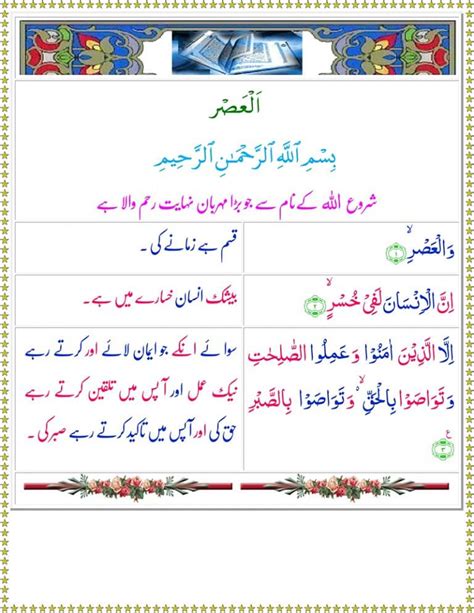 اَلْعَصْر
بِسْمِ اللَّهِ الرَّحْمَٰنِ الرَّحِيمِ
شروع اللہ کے نام سے جو بڑا مہربان نہایت رحم والا ہے
وَالْعَصْرِ ۙ ﴿۱﴾
قسم ہے زمانے کی ۔
اِنَّ الْاِنْسَانَ لَفِیْ خُسْرٍ ۙ ﴿۲﴾
بیشک انسان خسارے میں ہے ۔
اِلَّا الَّذِیْنَ اٰمَنُوْا وَعَمِلُوا الصّٰلِحٰتِ
وَتَوَاصَوْا بِالْحَقِّ ۙ وَتَوَاصَوْا بِالصَّبْرِ
﴿۳﴾ ع
سوائے انکے جو ایمان لائے اور کرتے رہے
نیک عمل اور آپس میں تلقین کرتے رہے
حق کی اور آپس میں تاکید کرتے رہے صبر کی ۔